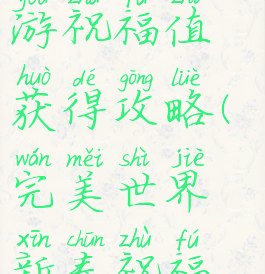 yóu zhù fú zhí
游祝福值
huò dé gōng lüè
获得攻略(
wán měi shì jiè
完美世界
xīn chūn zhù fú
新春祝福